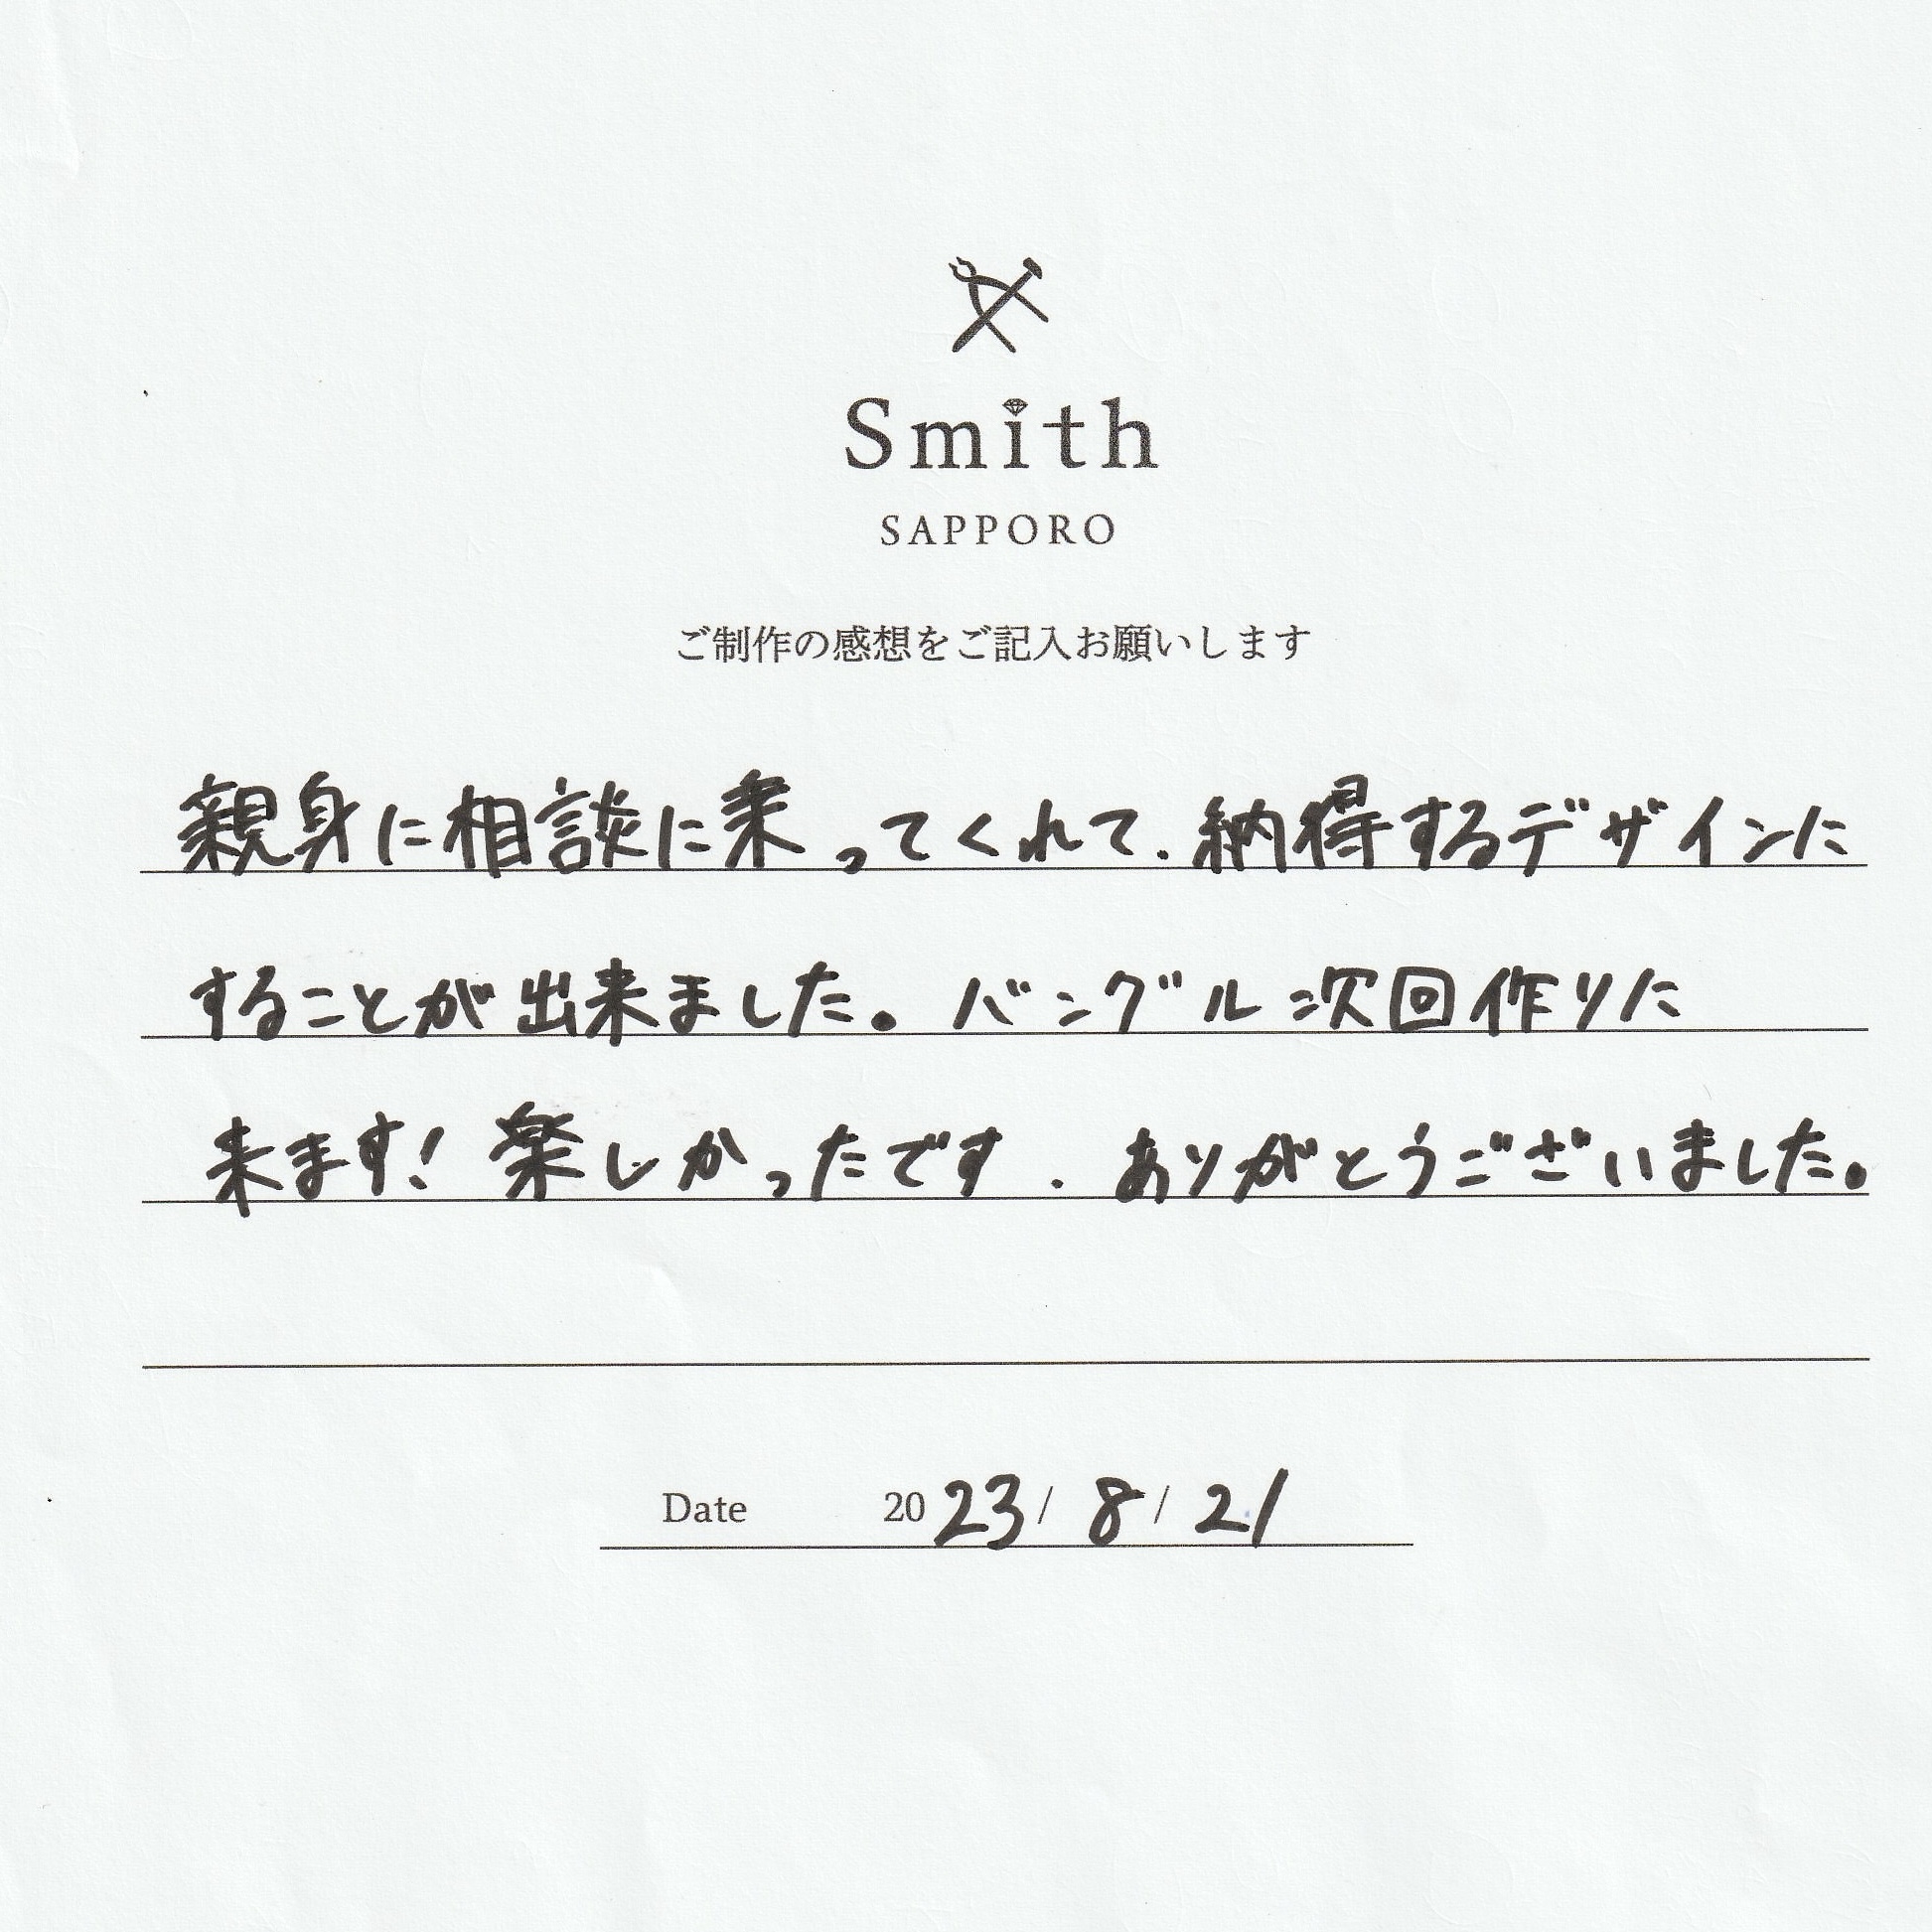 Smith
SAPPORO
ご制作の感想をご記入お願いします
親身に相談に乗ってくれて、納得するデザインに
することが出来ました。バングル次回作りに
来ます!楽しかったです、ありがとうございました。
Date 2023/8/21